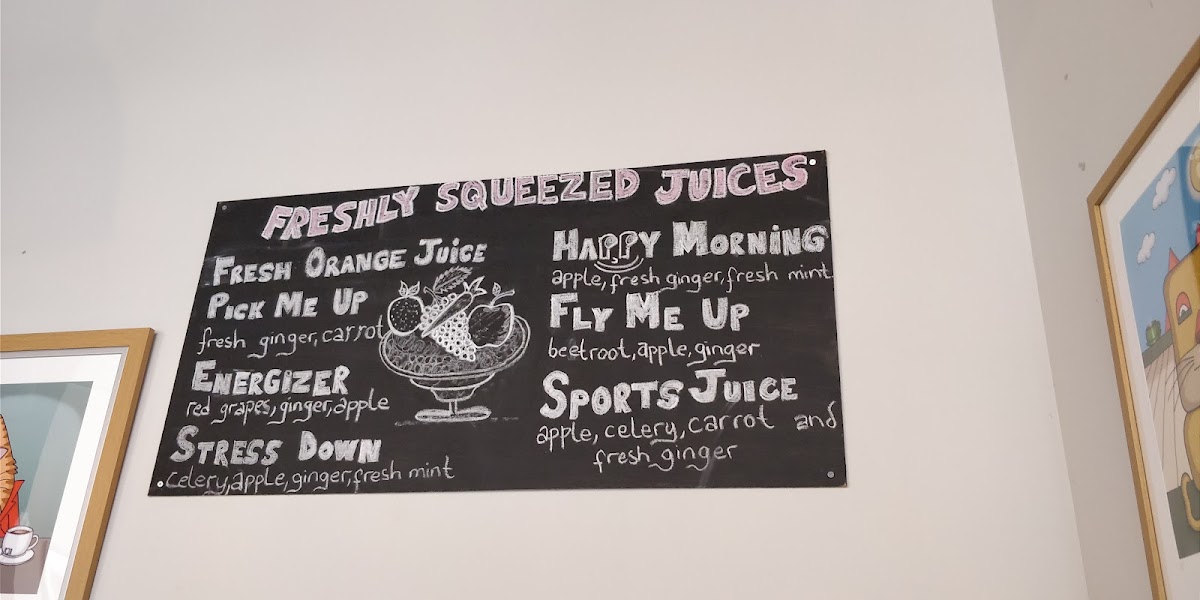 FRESHLY SQUEEZED JUICES
FRESH ORANGE JUICE
PICK ME UP
fresh ginger, carrot
ENERGIZER
red grapes, ginger, apple
STRESS DOWN
celery, apple, ginger, fresh mint
HAPPY MORNING
apple, fresh ginger, fresh mint
FLY ME UP
beetroot, apple, ginger
SPORTS JUICE
apple, celery, carrot and
fresh ginger